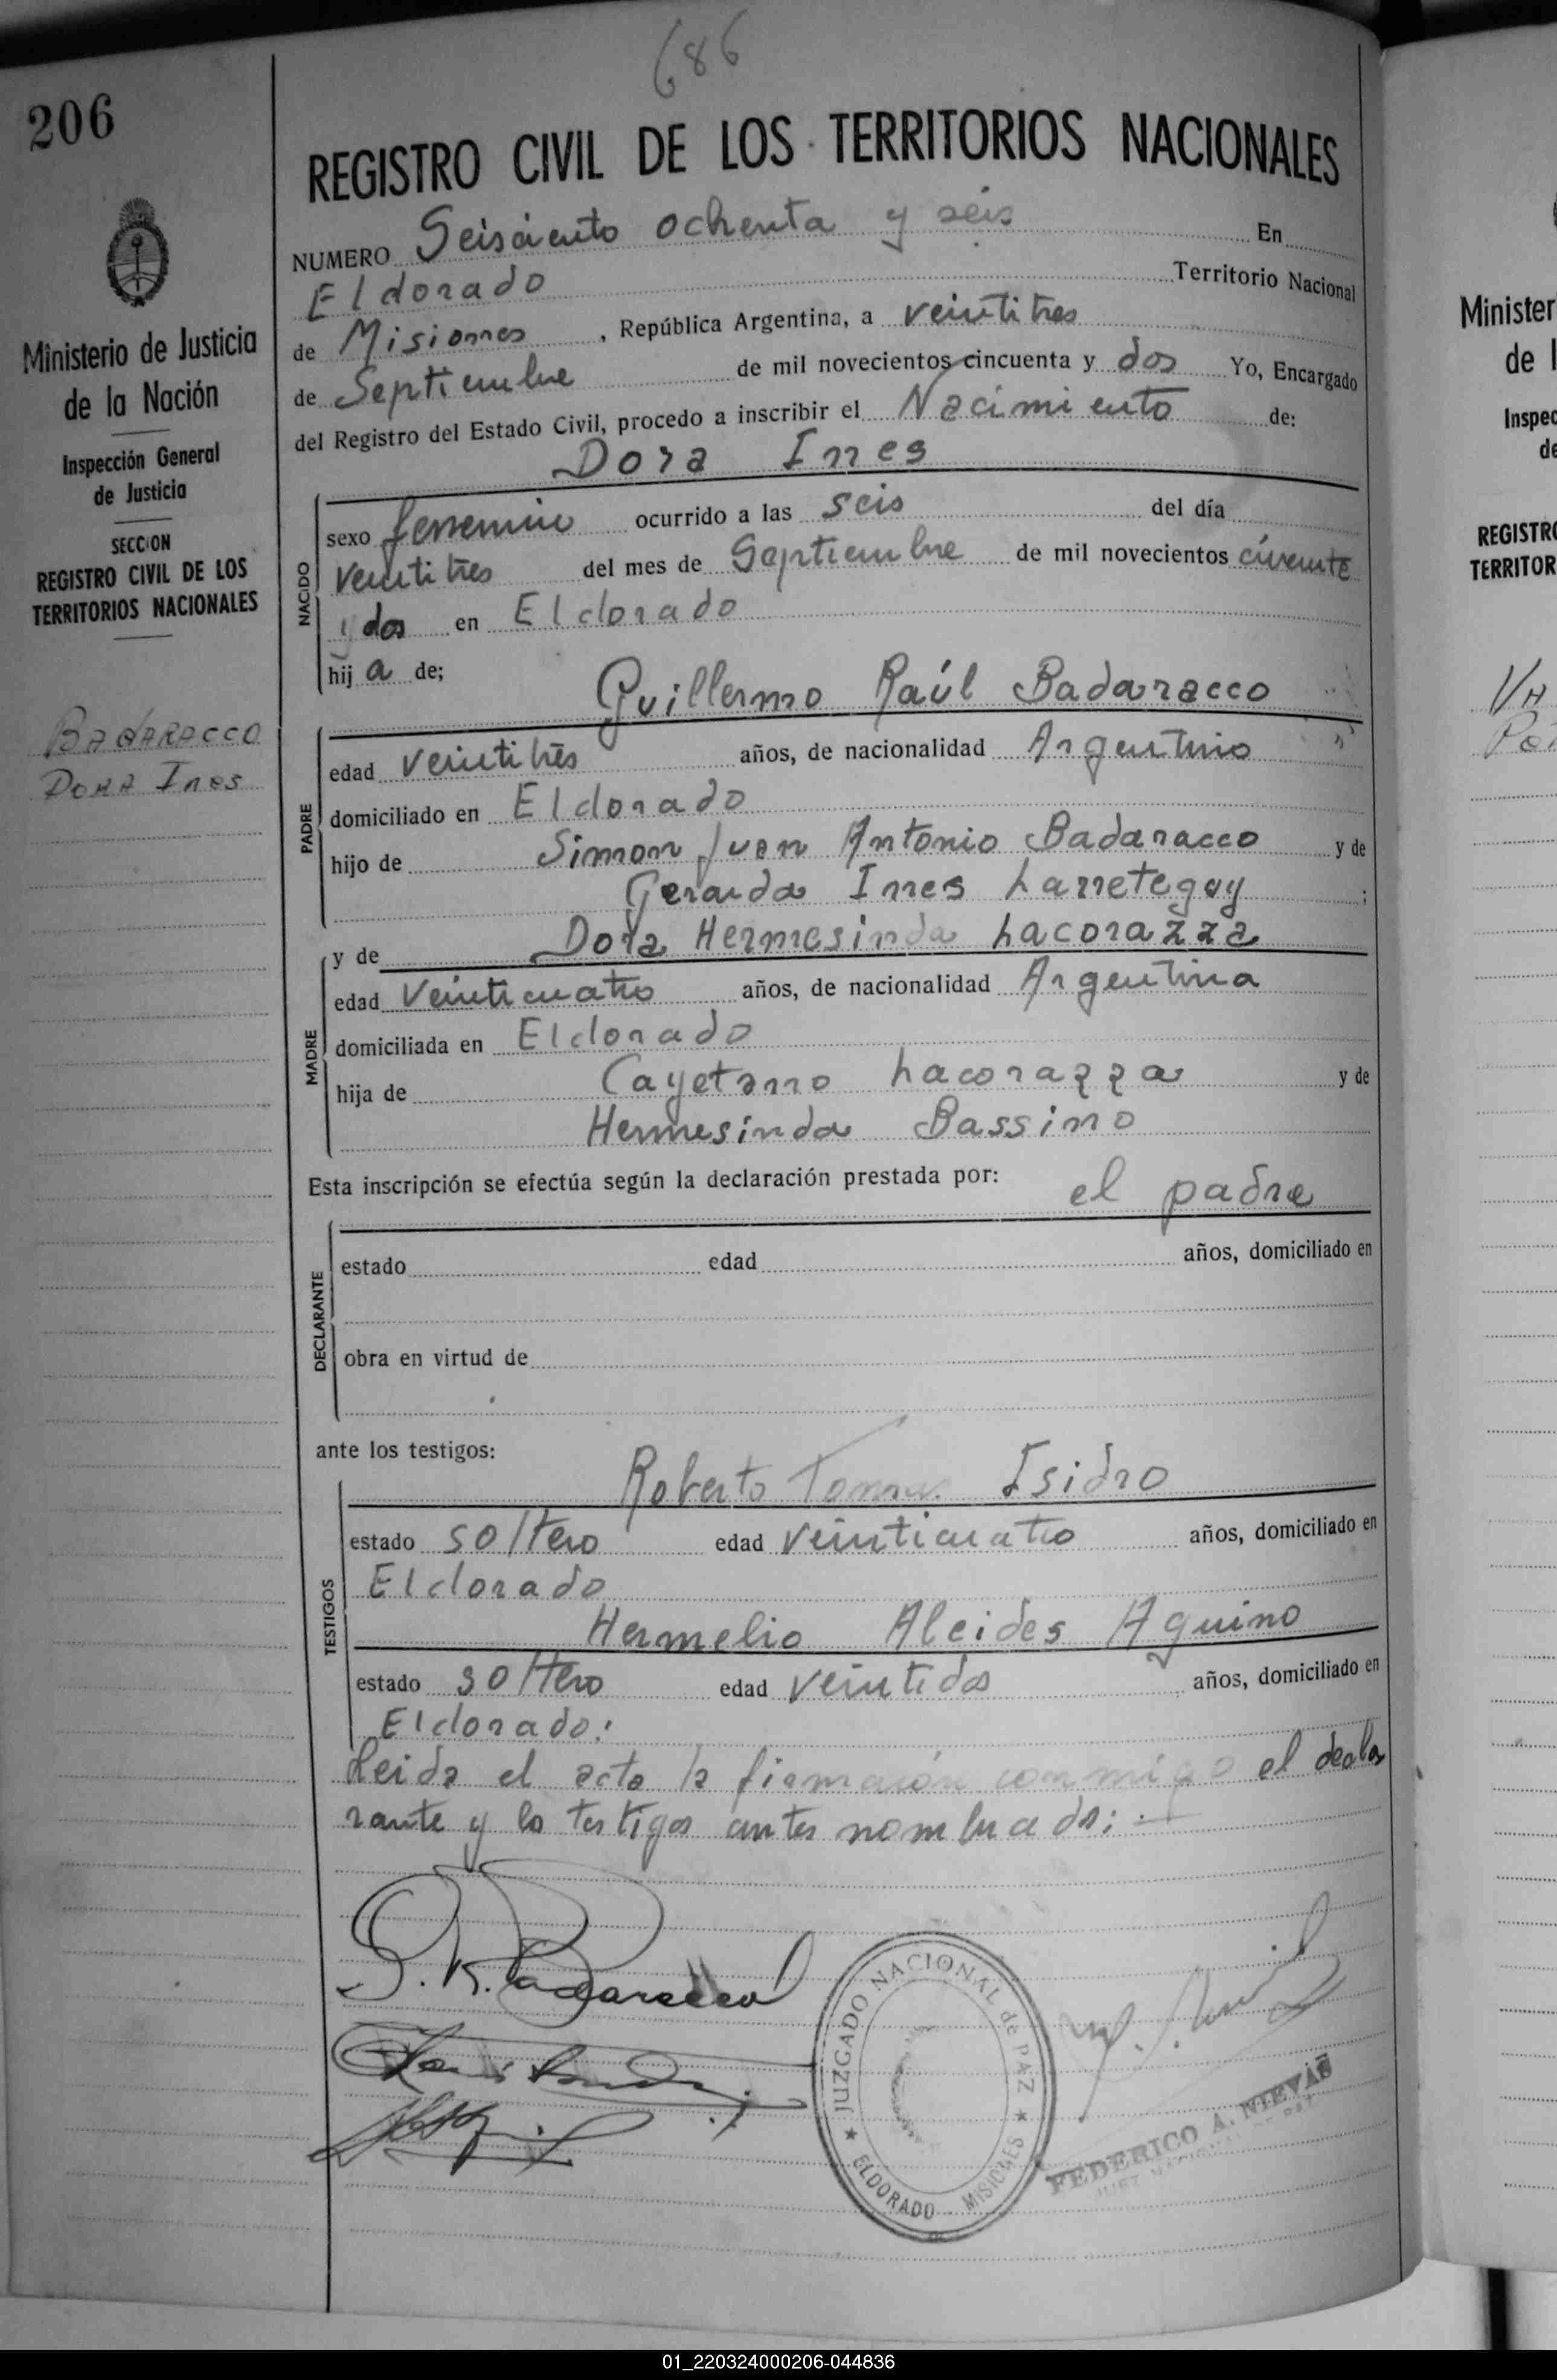 686
206
REGISTRO CIVIL DE LOS TERRITORIOS NACIONALES
NUMERO Seisciento ochenta y seis En
Eldorado Territorio Nacional
de Misiones, República Argentina, a veintitres
de Septiembre de mil novecientos cincuenta y dos Yo, Encargado
del Registro del Estado Civil, procedo a inscribir el Nacimiento de:
Dora Ines
NACIDO
sexo femenino ocurrido a las seis del día
veintitres del mes de Septiembre de mil novecientos cincuenta
y dos en Eldorado
hij a de;
Guillermo Raúl Badaracco
PADRE
edad veintitrés años, de nacionalidad Argentino
domiciliado en Eldorado
hijo de Simon Juan Antonio Badaracco y de
Gerarda Ines Larretegoy ;
y de Dora Hermesinda Lacorazza
MADRE
edad Veinticuatro años, de nacionalidad Argentina
domiciliada en Eldorado
hija de Cayetano Lacorazza y de
Hermesinda Bassino
Esta inscripción se efectúa según la declaración prestada por: el padre
DECLARANTE
estado edad años, domiciliado en
obra en virtud de
ante los testigos:
Roberto Isidro
TESTIGOS
estado soltero edad veinticuatro años, domiciliado en
Eldorado
Hermelio Alcides Aquino
estado soltero edad veintidos años, domiciliado en
Eldorado:
Leida el acta la firmarón conmigo el decla
rante y los testigos antes nombrados: —
G. R. Badaracco
JUZGADO NACIONAL de PAZ
ELDORADO - MISIONES
FEDERICO A. NIEVAS
JUEZ NACIONAL DE PAZ
Ministerio de Justicia
de la Nación
Inspección General
de Justicia
SECCION
REGISTRO CIVIL DE LOS
TERRITORIOS NACIONALES
BADARACCO
DORA Ines
Minister
de l
Inspec
de
REGISTRO
TERRITOR
01_220324000206-044836